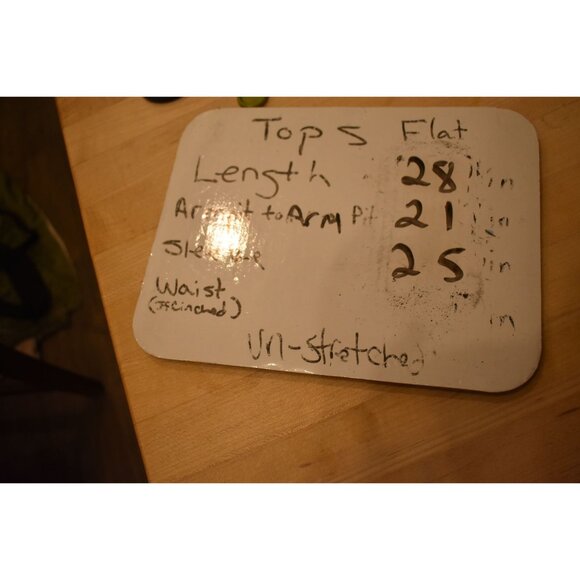 Tops Flat
Length 28 in
Armpit to Arm Pit 21 in
Sleeve 25 in
Waist
(If Cinched) in
Un-Stretched